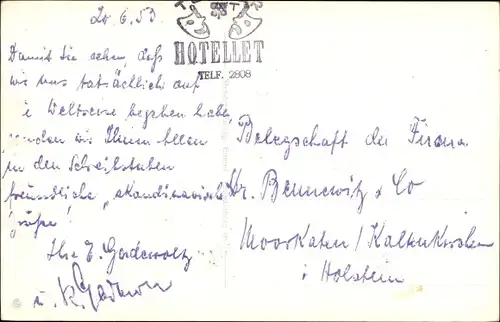 20.6.53
HOTELLET
TELF. 2808
Damit Sie sehen, daß
wir uns tatsächlich auf
Weltreise begeben haben,
senden wir Ihnen allen
in den Schreibstuben
freundliche „skandinavische"
Grüße!
Ihr E.
u. K.
Belegschaft der Firma
Dr. Bennewitz & Co
Moorkaten / Kaltenkirchen
i Holstein